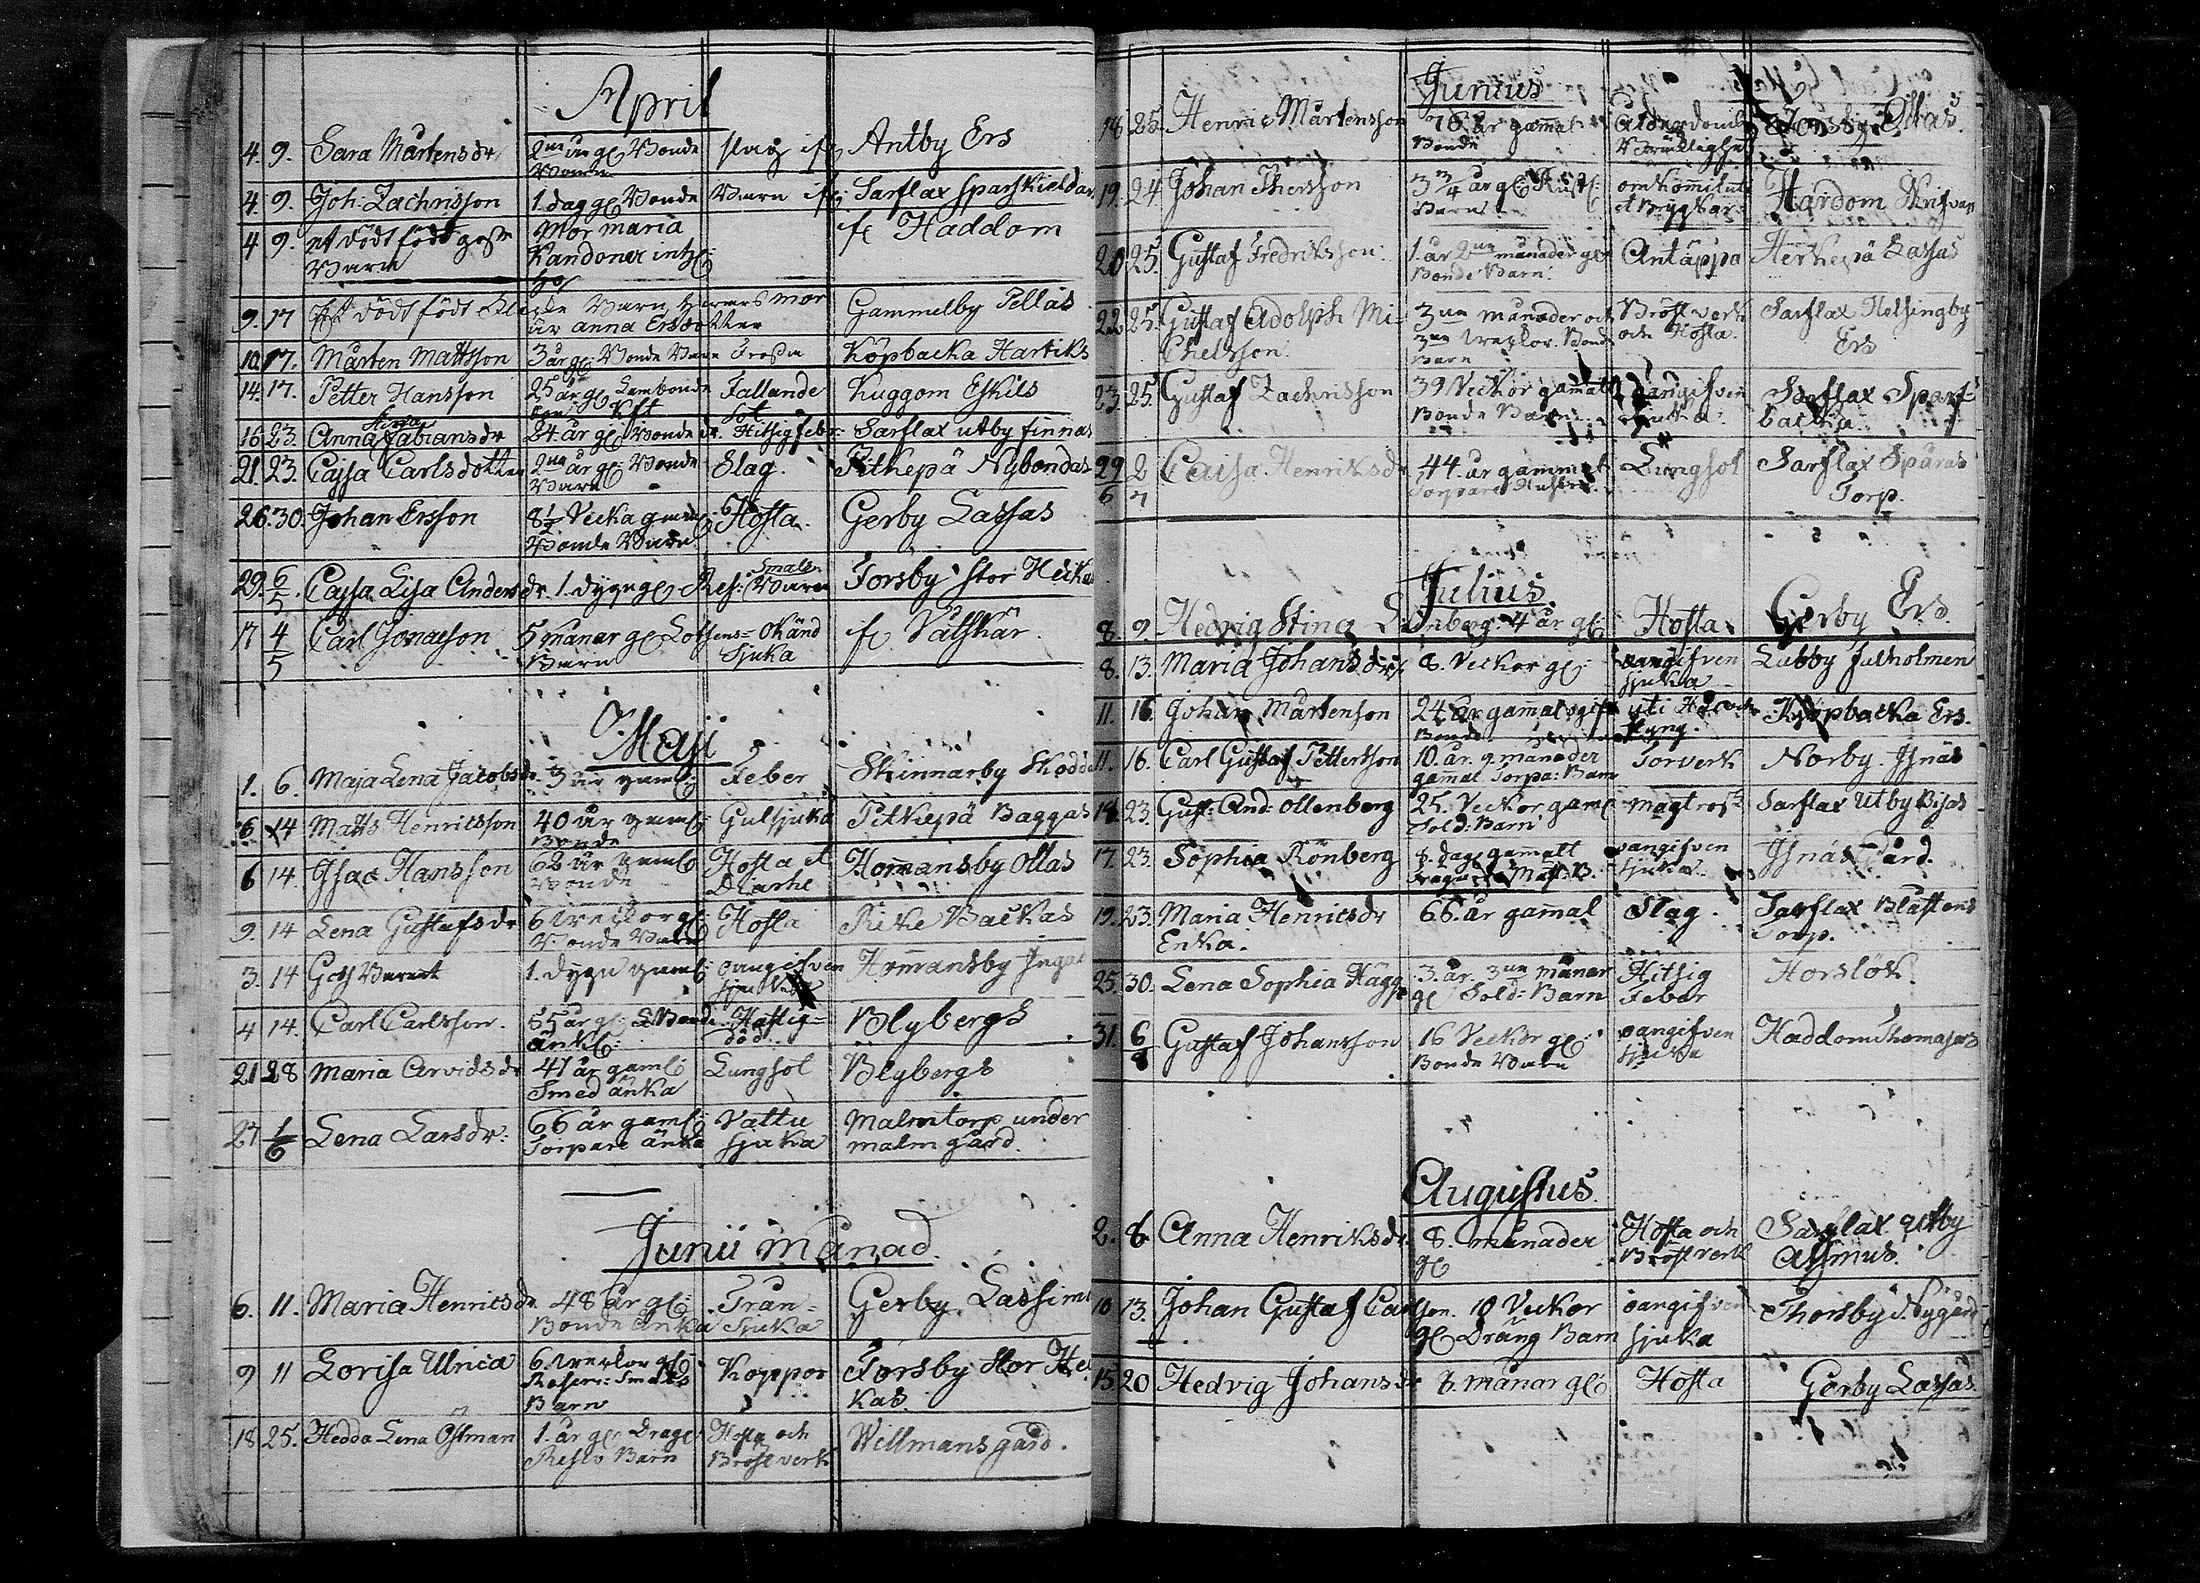 April
4. 9. Sara Mårtensdr 2ne år gl Bonde Barn slag if Antby Ers
4. 9. Joh: Zachrisson 1. dag gl Bonde Barn if Sarflax Sparskieldar
4 9. et dödt födt goss Barn Mor maria if Haddom
9. 17 dödt födt Barn Hvars mor är anna Ersdotter Gammelby Pellas
10. 17. Mårten Mattsson 3 år gl: Bonde Barn Trossa Köpbacka Hartiks
14. 17. Petter Hansson 25 år gl Fallande sot Kuggom Eskils
16 23. Anna Fabiansdr 24. år gl Bonde dr. Hitsig feber Sarflax utby finnas
21. 23. Cajsa Carlsdotter 2ne år gl Bonde Barn Slag. Pitkepä Nybondas
26. 30. Johan Ersson 8½ Vecka gaml Bonde Barn Hosta. Gerby Lassas
29. 6/5. Cajsa Lisa Andersdr. 1. dygn gl Res: Smale Barn Forsby Stor Heikas
17 4/5 Carl Jonaeson 5 månar gl Lotsens Barn Okänd Sjuka if Våtskär.
Maji
1. 6. Maja Lena Jacobsdr 3 år gaml: Feber Skinnarby Skodda
6 14 Matts Henricsson 40 år gaml Bonde Gulsjuka Pitkepä Baggas
6 14. Isac Hansson 62 år gaml Bonde Hosta et Diarhe Hommansby Ollas
9. 14 Lena Gustafsdr 6 Veckor gl: Bonde Barn Hosta Rike Backas
3. 14 Goss Barnet 1. dygn gaml: oangifven sjukdom Hommansby Ingas
4 14. Carl Carlsson. 55 år gl: Bonde änkl: Hastig död Blybergs
21 28 Maria Arvidsdr 47 år gaml: Smed änka Lungsot Blybergs
27 1/6 Lena Larsdr: 66 år gaml: Torpare änka Vattu sjuka Malmtorp under malmgård.
Junii månad.
6. 11. Maria Henricsdr. 48 år gl: Bonde änka Trån= Sjuka Gerby Lassi
9 11 Lovisa Ulrica 6. Veckor gl: Reserv: Smeds Barn Koppor Forsby Stor Hei kas.
18 25. Hedda Lena Östman 1. år gl Drag: Resld Barn Hosta och Bröstverk Willmansgård.
Junius
18 25. Henric Mårtensson 76 år gamal Bonde ålderdoms Bräcklighet Forsby Ollas.
19. 24. Johan Thersson 3 3/4 år gl Rust: Barn omkommit uti et Bryggkar: Hardom Skrifvars
20 25. Gustaf Fredriksson. 1. år 2ne månader gl Bonde Barn. Antäppa Herkepä Lassas
22 25. Gustaf Adolph Mi= chelsson. 3ne månader och 3ne Veckor. Bonde Barn Bröst verk och Hosta. Sarflax Helsingby Ers
23. 25. Gustaf Zachrisson 39 Veckor gammalt Bonde Barn. oangifven sjuka. Sarflax Sparf= backa
29/6 2/7 Caisa Henriksdr 44 år gammal Torpare Hustru Lungsot Sarflax Spåras Torp.
Julius.
8. 9. Hedvig Stina Lönberg. 4 år gl: Hosta Gerby Ers.
8. 13. Maria Johansdr 8. Veckor gl: oangifven sjuka Labby
11. 16. Johan Mårtenson 24 år gammal ogift Bonde uti Håll och styng. Köpbacka Ers.
11. 16. Carl Gustaf Pettersson 10. år. 9. månader gammal Torpa: Barn Torverk Norby. Isnäs
18. 23. Gust: And: Ollenberg 25. Veckor gaml Sold: Barn magtrosk Sarflax Utby Bisas
17. 23. Sophia Rönberg 8. dag: gammalt oangifven sjuka Isnäs Gård.
19. 23. Maria Henricsdr Enka. 66. år gamal Slag. Sarflax Torp.
25. 30. Lena Sophia Hägg 3. år. 3ne månar gl Sold: Barn Hitsig Feber Horslök.
31. 6/8 Gustaf Johansson 16 Veckor gl: Bonde Barn oangifven sjuka Haddom Thomasas
Augustus.
2. 6. Anna Henriksdr. 8. månader gl Hosta och Bröstverk Sarflax utby Asmus.
10 13. Johan Gustaf Carlson. 10 Veckor gl Dräng Barn oangifven sjuka Thorsby Nygård
15. 20 Hedvig Johansdr 6. månar gl: Hosta Gerby Lassas